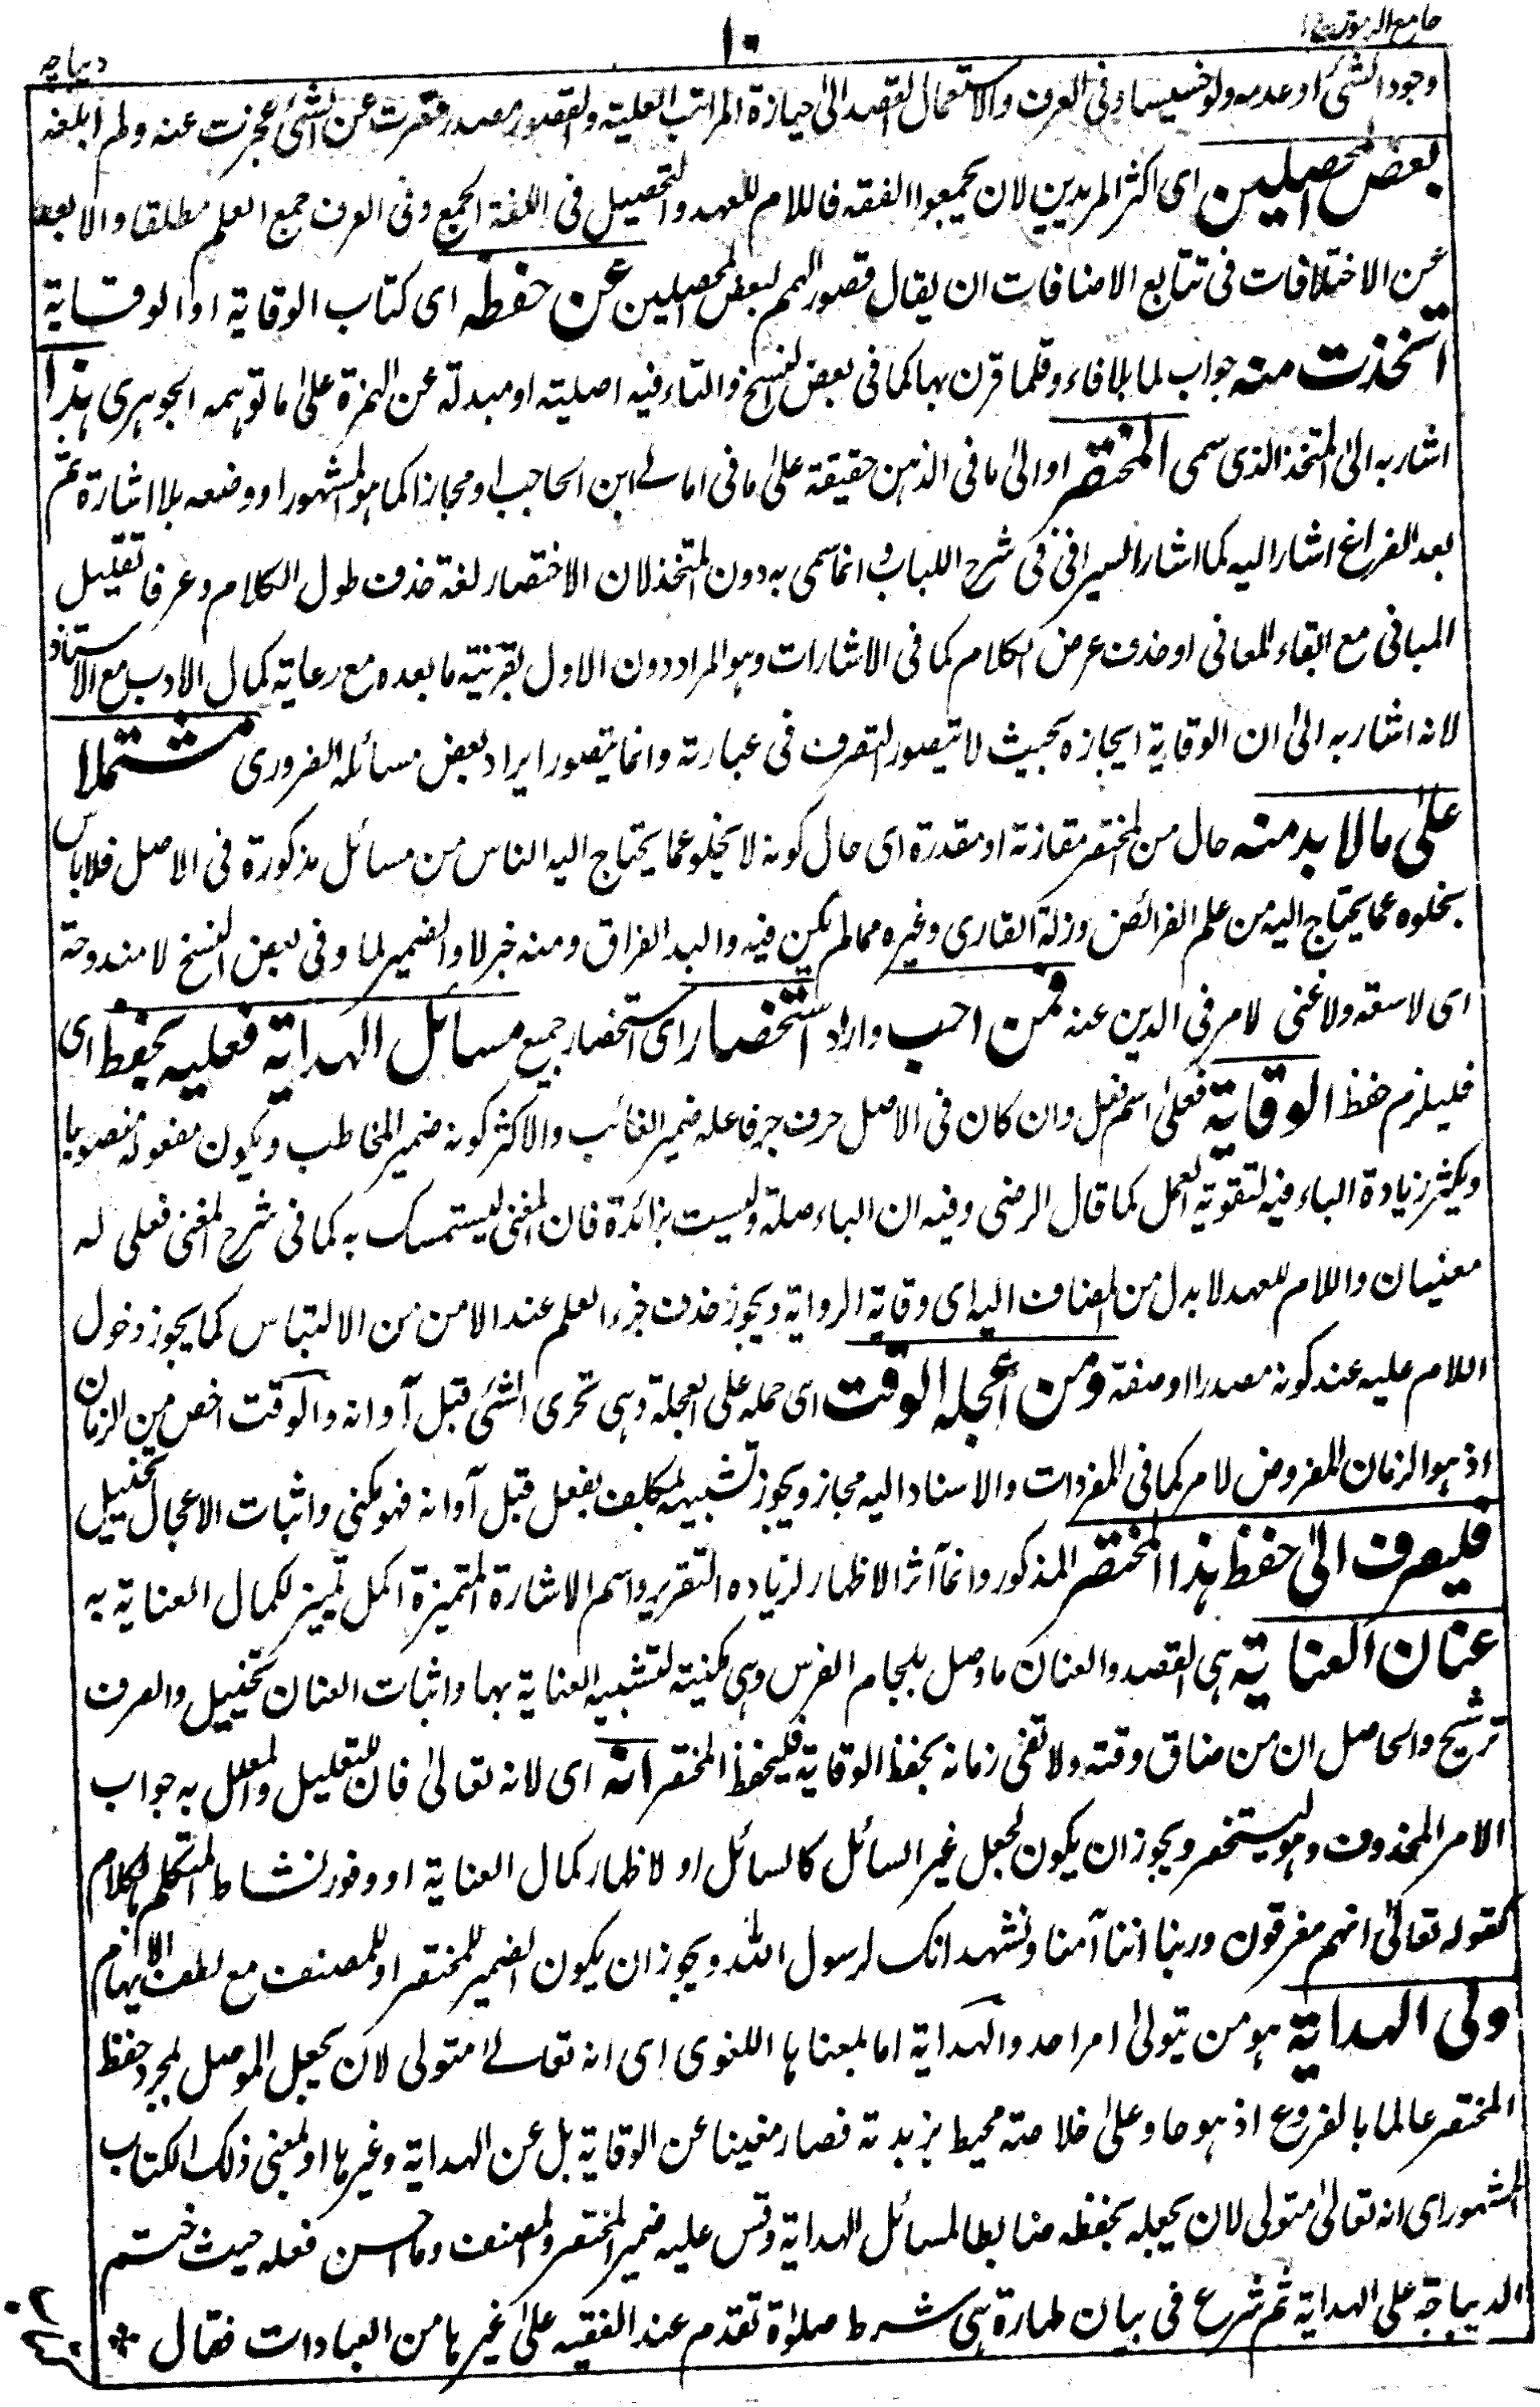 جامع الرموز ج ١
١٠
ديباچه
وجود الشئ او عدمه ولو خسيسا وفى العرف والاستعمال القصد الى حيازة المراتب العلية والقصور مصدر قصرت عن الشئ عجزت عنه ولم ابلغه
بعض المحصلين اى اكثر المريدين لان يجمعوا الفقه فاللام للعهد والتحصيل فى اللغة الجمع وفى العرف جمع العلم مطلقا والابعد
عن الاختلافات فى تتابع الاضافات ان يقال قصور الهمم لبعض المحصلين عن حفظه اى كتاب الوقاية او الوقاية
اتخذت منه جواب لما بلا فاء وقلما قرن بها كما فى بعض النسخ والتاء فيه اصلية او مبدلة عن الهمزة على ما توهمه الجوهرى هذا
اشار به الى المتخذ الذى سمى المختصر او الى ما فى الذهن حقيقة على ما فى امالى ابن الحاجب او مجازا كما هو المشهور او وضعه بلا اشارة ثم
بعد الفراغ اشار اليه كما اشار السيرافى فى شرح اللباب وانما سمى به دون المتخذ لان الاختصار لغة حذف طول الكلام وعرفا تقليل
المبانى مع ابقاء المعانى او حذف عرض الكلام كما فى الاشارات وهو المراد دون الاول بقرينة ما بعده مع رعاية كمال الادب مع الاستاذ
لانه اشار به الى ان الوقاية ايجازه بحيث لا يتصور التصرف فى عبارته وانما يتصور ايراد بعض مسائله الضرورى مشتملا
على ما لا بد منه حال من المختصر مقارنة او مقدرة اى حال كونه لا يخلو عما يحتاج اليه الناس من مسائل مذكورة فى الاصل فلا باس
بخلوه عما يحتاج اليه من علم الفرائض وزلة القارى وغيره مما لم يكن فيه والبد الفراق ومنه خبر لا والضمير لما وفى بعض النسخ لا مندوحة
اى لا سعة ولا غنى لامر فى الدين عنه فمن احب واراد استحضار اى استحضار جميع مسائل الهداية فعليه بحفظ اى
فليلزم حفظ الوقاية فعلى اسم فعل وان كان فى الاصل حرف جر فاعله ضمير الغائب والاكثر كونه ضمير المخاطب ويكون مفعوله منصوبا
ويكثر زيادة الباء فيه لتقوية العمل كما قال الرضى وفيه ان الباء صلة وليست بزائدة فان المغنى ليستمسك به كما فى شرح المغنى فعلى له
معنيان واللام للعهد لا بدل من المضاف اليه اى وقاية الرواية ويجوز حذف جزء العلم عند الامن من الالتباس كما يجوز دخول
اللام عليه عند كونه مصدرا او صفة ومن اعجله الوقت اى حمله على العجلة وهى تحرى الشئ قبل آوانه والوقت اخص من الزمان
اذ هو الزمان المفروض لامر كما فى المفردات والاسناد اليه مجاز ويجوز تشبيه بمكلف يفعل قبل آوانه فهو مكنى واثبات الاعجال تخييل
فليصرف الى حفظ هذا المختصر المذكور وانما آثر الاظهار لزيادة التقرير واسم الاشارة المتميزة اكمل تميز لكمال العناية به
عنان العناية هى القصد والعنان ما وصل بلجام الفرس وهى مكنية لتشبيه العناية بها واثبات العنان تخييل والصرف
ترشيح والحاصل ان من ضاق وقته ولا تفى زمانه بحفظ الوقاية فليحفظ المختصر انه اى لانه تعالى فان للتعليل والمعلل به جواب
الامر المحذوف وهو ليستحضر ويجوز ان يكون لجعل غير السائل كالسائل او لاظهار كمال العناية او وفور نشاط المتكلم بالكلام
كقوله تعالى انهم مغرقون وربنا اننا آمنا ونشهد انك لرسول الله ويجوز ان يكون الضمير للمختصر او للمصنف مع لطف الايهام
ولى الهداية هو من يتولى امر احد والهداية اما بمعناها اللغوى اى انه تعالى متولى لان يجعل الموصل لمجرد حفظ
المختصر عالما بالفروع اذ هو حاو على خلاصته محيط بزبدته فصار مغنيا عن الوقاية بل عن الهداية وغيرها او لمعنى ذلك الكتاب
المشهور اى انه تعالى متولى لان يجعله بحفظه ضابطا لمسائل الهداية وقس عليه ضمير المختصر والمصنف وما احسن فعله حيث ختم
الديباجة على الهداية ثم شرع فى بيان طهارة هى شرط صلوة تقدم عند الفقيه على غيرها من العبادات فقال *